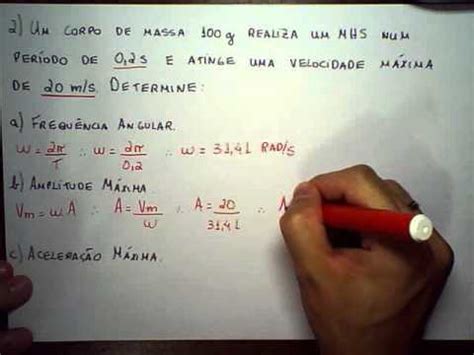 2) UM CORPO DE MASSA 100g REALIZA UM MHS NUM
PERÍODO DE 0,2s E ATINGE UMA VELOCIDADE MÁXIMA
DE 20 m/s. DETERMINE:
a) FREQUÊNCIA ANGULAR.
ω = 2π/T ∴ ω = 2π/0,2 ∴ ω = 31,41 RAD/S
b) AMPLITUDE MÁXIMA
Vm = ωA ∴ A = Vm/ω ∴ A = 20/31,41 ∴ A
c) ACELERAÇÃO MÁXIMA.